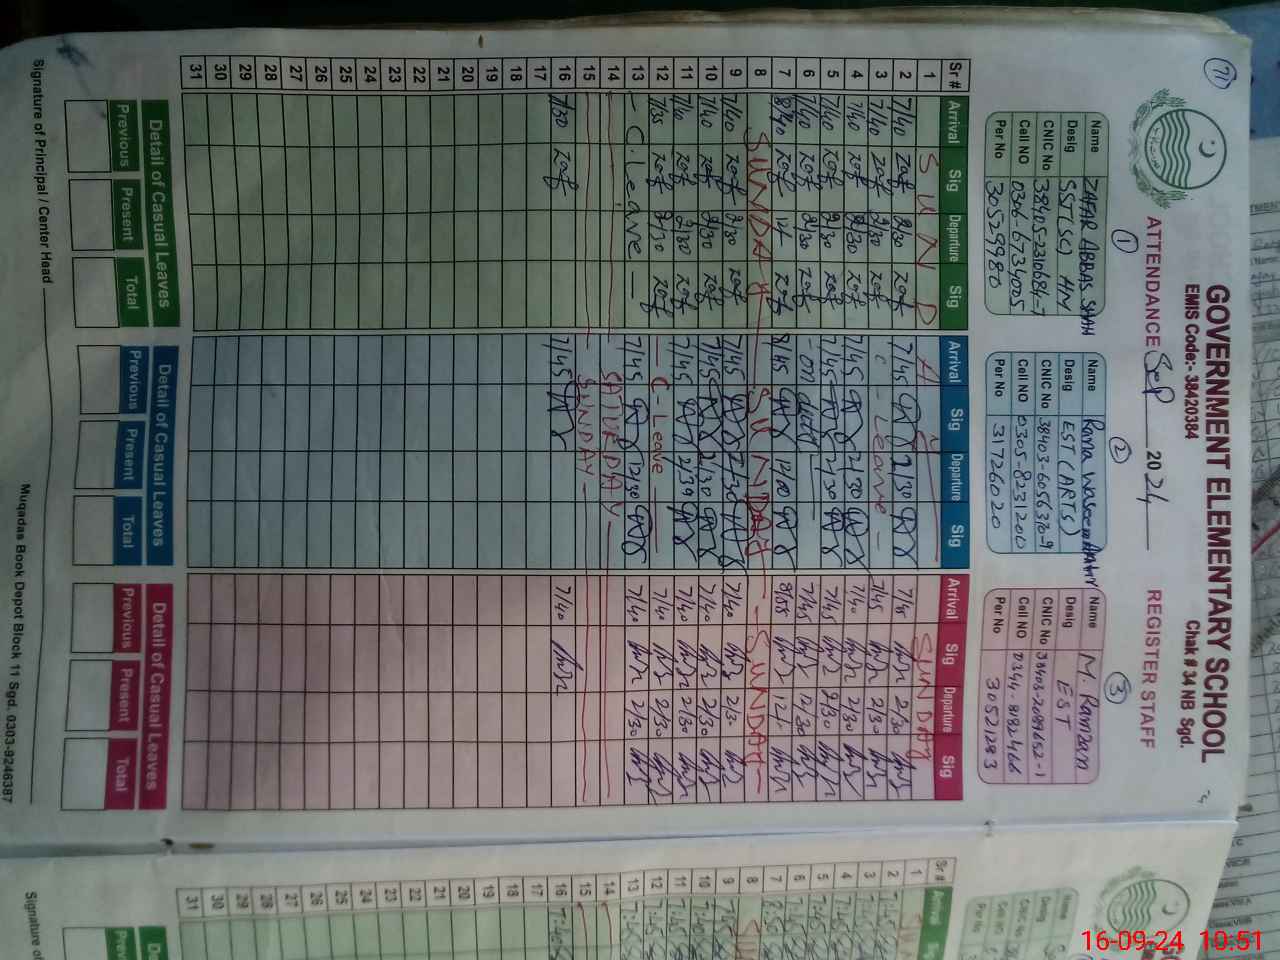 71
GOVERNMENT ELEMENTARY SCHOOL
EMIS Code:- 38420384
Chak # 34 NB Sgd.
ATTENDANCE Sep 2024 REGISTER STAFF
1
Name ZAFAR ABBAS SHAH
Desig SST(SC) HM
CNIC No 38405-2310684-7
Cell NO 0306-6734005
Per No 30529980
2
Name Rana Waseem
Desig EST (ARTS)
CNIC No 38403-6056370-9
Cell NO 0305-8231200
Per No 31726020
3
Name M. Ramzan
Desig EST
CNIC No 38403-2089652-1
Cell NO 0344-8182466
Per No 30521283
Sr # Arrival Sig Departure Sig Arrival Sig Departure Sig Arrival Sig Departure Sig
1 SUNDAY
2 7/40 2/30 7/45 2/30 7/45 2/30
3 7/40 2/30 C - Leave - 7/45 2/30
4 7/40 2/30 7/45 2/30 7/40 2/30
5 7/40 2/30 7/45 2/30 7/45 2/30
6 7/40 2/30 - on duty 7/45 12/30
7 8/40 12/- 8/45 12/00 8/55 12/-
8 SUNDAY SUNDAY SUNDAY
9 7/40 2/30 7/45 2/30 7/40 2/30
10 7/40 2/30 7/45 2/30 7/40 2/30
11 7/40 2/30 7/45 2/30 7/40 2/30
12 7/35 2/30 C - Leave 7/40 2/30
13 - C. Leave - 7/45 12/30 7/40 2/30
14 SATURDAY
15 SUNDAY
16 7/30 7/45 7/40
17
18
19
20
21
22
23
24
25
26
27
28
29
30
31
Detail of Casual Leaves Detail of Casual Leaves Detail of Casual Leaves
Previous Present Total Previous Present Total Previous Present Total
Signature of Principal / Center Head
Muqadas Book Depot Block 11 Sgd. 0303-9246387
Sr # Arrival
1
2
3
4
5
6
7
8
9
10
11
12
13
14
15
16
17
18
19
20
21
22
23
24
25
26
27
28
29
30
31
Signature of
16-09-24 10:51